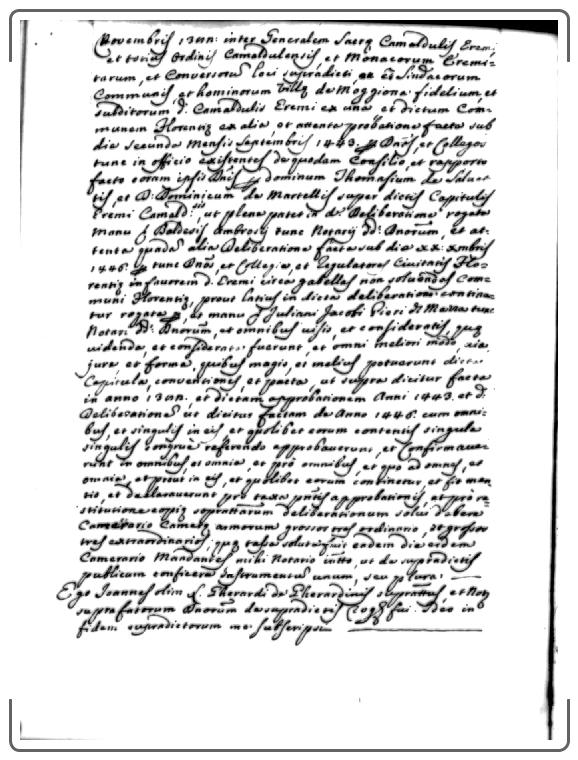 Novembris 1382: inter Generalem Sacrę Camaldulis Eremi
et totius Ordinis Camaldulensis, et Monacorum Eremi-
tarum, et Conversorum loci supradicti, ex et Sindacorum
Communis et hominum Villę de Moggiona fidelium, et
subditorum d. Camaldulis Eremi ex una et dictum Com-
munem Florentię ex alia et attenta probatione facta sub
die secunda Mensis Septembris 1443. Dños, et Collegos
tunc in officio existentes de quodam Consilio, et rapporto
facto coram ipsis Dñis dominum Thomasium de Saluta-
tis, et D. Dominicum de Martellis super dictis Capitulis
Eremi Camald: ut plene patet in d. Deliberatione rogata
Manu Baldesis Ambrosij tunc Notarij dd: Dnorum, et at-
tenta quadã alia Deliberatione facta sub die xx: xmbris
1446. tunc Dños, et Collegia, et Regulatores Civitatis Flo-
rentię in favorem d. Eremi circa gabelles non solvendas Com-
muni Florentię, prout latius in dicta deliberatione contine-
tur rogata, et manu Juliani Jacobi Pieri tunc
Notari dd: Dnorum, et omnibus visis, et consideratis, quę
videnda, et considerata fuerunt, et omni meliori modo, via,
jure, et forma, quibus magis, et melius potuerunt dicta
Capitula, conventiones, et pacta, ut supra dicitur facta
in anno 1382. et dictam approbationem Anni 1443. et d.
Deliberationẽ ut dicitur factam de Anno 1446. cum omni-
bus, et singulis in eis, et quolibet eorum contentis singula
singulis congruè referendo approbaverunt, et Confirmave-
runt in omnibus, et omnia, et prò omnibus, et quo ad omnes, et
omnia, et prout in eis, et quolibet eorum continetur, et fit men
tio, et declaraverunt pro taxa pñtis approbationis, et prò re-
stitutione soprattarum deliberationum solvi debere
Camerario Camerę armorum grossos tres ordinario, et grossos
tres extraordinarios, quę taxa soluta fuit eadem die eidem
Camerario Mandantes mihi Notario ut de supradictis
publicum conficere Instrumentũ unum, seu plura:
Ego Joannes olim S. Gherardi de Gherardinis et Notę
suprafatorum Dnorum de supradictis rogę fui. Ideo in
fidem supradictorum me subscripsi